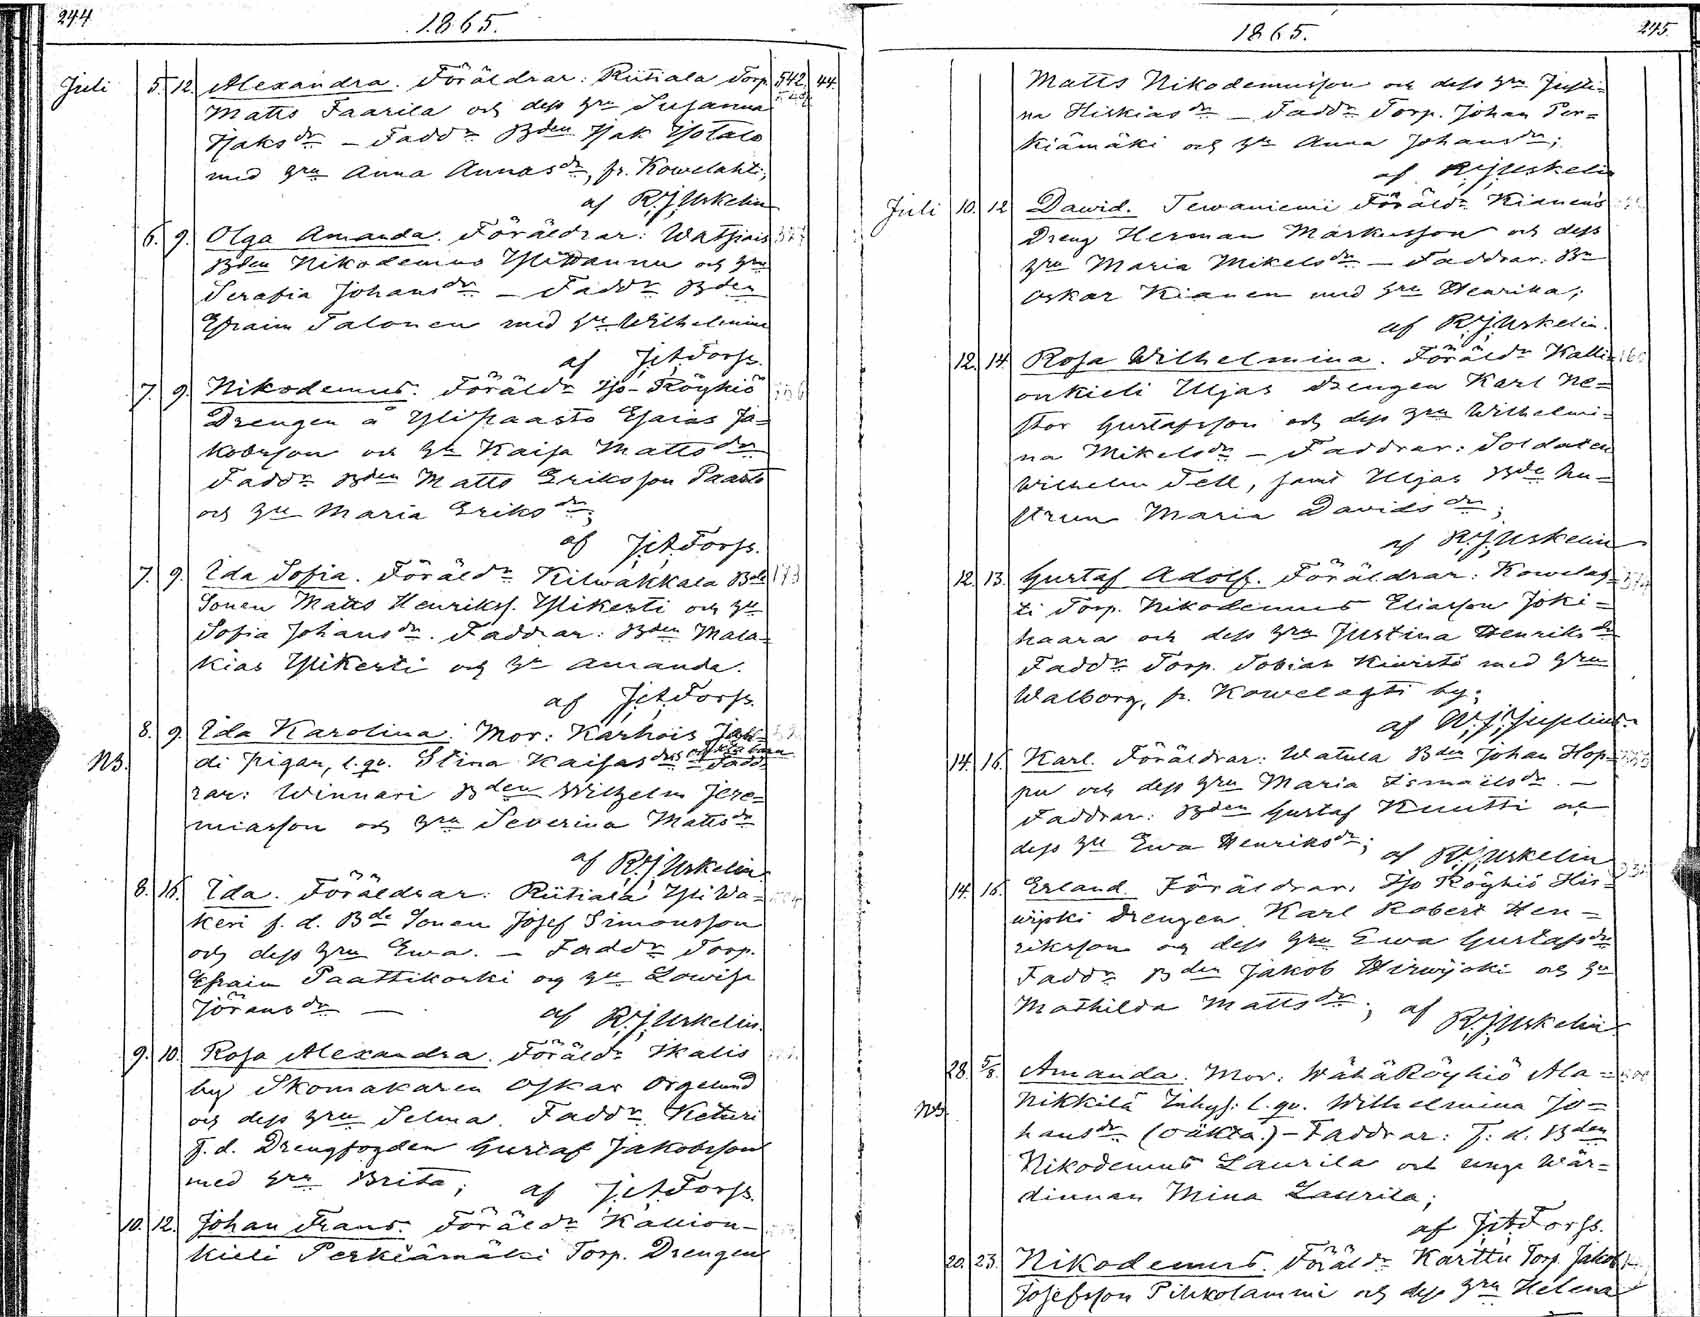 244
1865.
Juli 5. 12. Alexandra. Föräldrar: Riitiala Torp. 542. 44.
Matts Faarila och dess hru Susanna
Isaksdr — Faddr Bden Isak Isotalo
med hru Anna Annasdr, fr. Kowelahti;
af R.J. Urkelin
6. 9. Olga Amanda. Föräldrar: Watsiais
Bden Nikodemus Yliwannu och hru
Serafia Johansdr — Faddr Bden
Efraim Talonen med hr Wilhelmina
af J.A. Forss.
7. 9. Nikodemus. Föräldr Iso-Röyhiö
Drengen å Ylipaasto Esaias Ja=
kobsson och hr Kaisa Mattsdr
Faddr Bden Matts Eriksson Paasto
och hru Maria Eriksdr;
af J.A. Forss.
7. 9. Ida Sofia. Föräldr Kilwakkala Bde 173
Sonen Matts Henrikss. Ylikesti och hru
Sofia Johansdr. Faddrar: Bden Mala=
kias Ylikesti och hr Amanda.
af J.A. Forss.
8. 9. Ida Karolina. Mor: Karhois
NB. di pigan, l. qv. Stina Kaisasdrs oäkta barn Fadd=
rar: Winnari Bden Wilhelm Jere=
miasson och hru Severina Mattsdr
af R.J. Urkelin
8. 16. Ida. Föräldrar: Riitiala Yli Wa=
keri f. d. Bde Sonen Josef Simonsson
och dess hru Ewa. — Faddr Torp.
Efraim Paattikoski og hru Lowisa
Jöransdr — af R.J. Urkelin.
9. 10. Rosa Alexandra. Föräldr Ikalis
by Skomakaren Oskar Orgelund
och dess hru Selma. Faddr Keturi
f. d. Drengfogden Gustaf Jakobsson
med hru Brita; af J.A. Forss.
10. 12. Johan Frans. Föräldr Kallion-
kieli Perkiämäki Torp. Drengen
245.
1865.
Matts Nikodemusson och dess hru Justi=
na Hiskiasdr — Faddr Torp. Johan Per=
kiämäki och hr Anna Johansdr;
af R.J. Urkelin
Juli 10. 12 Dawid. Tewaniemi Föräldr Kianens
Dreng Herman Markusson och dess
hru Maria Mikelsdr — Faddrar. Bn
Oskar Kianen med hru Henrika;
af R.J. Urkelin.
12. 14. Rosa Wilhelmina. Föräldr Kalli=
onkieli Uljas drengen Karl Ne=
stor Gustafsson och dess hru Wilhelmi=
na Mikelsdr — Faddrar: Soldaten
Wilhelm Tell, samt Uljas Bde hu=
strun Maria Davidsdr;
af R.J. Urkelin
12. 13. Gustaf Adolf. Föräldrar: Kowelag=
ti Torp. Nikodemus Eliasson Joki=
haara och dess hru Justina Henriksdr
Faddr Torp. Tobias Kiwistö med hru
Walborg, fr. Kowelagti by;
af W.J. Juselius.
14. 16. Karl. Föräldrar: Watula Bden Johan Hop=
pu och dess hru Maria Ismaelsdr. —
Faddrar: Bden Gustaf Knutti och
dess hru Ewa Henriksdr; af R.J. Urkelin
14. 16. Erland. Föräldrar: Iso Röyhiö Hir=
wijoki drengen Karl Robert Hen=
riksson och dess hru Ewa Gustafsdr
Faddr Bden Jakob Hirwijoki och hru
Mathilda Mattsdr; af R.J. Urkelin.
28. 5/8. Amanda. Mor: WähäRöyhiö Ala=
NB. Nikkilä Inhys: l. qv. Wilhelmina Jo=
hansdr (oäkta.) — Faddrar: f. d. Bden
Nikodemus Laurila och unga Wär=
dinnan Mina Laurila;
af J.A. Forss.
20. 23. Nikodemus. Föräldr Karttu Torp. Jakob
Josefsson Pihkolammi och dess hru Helena